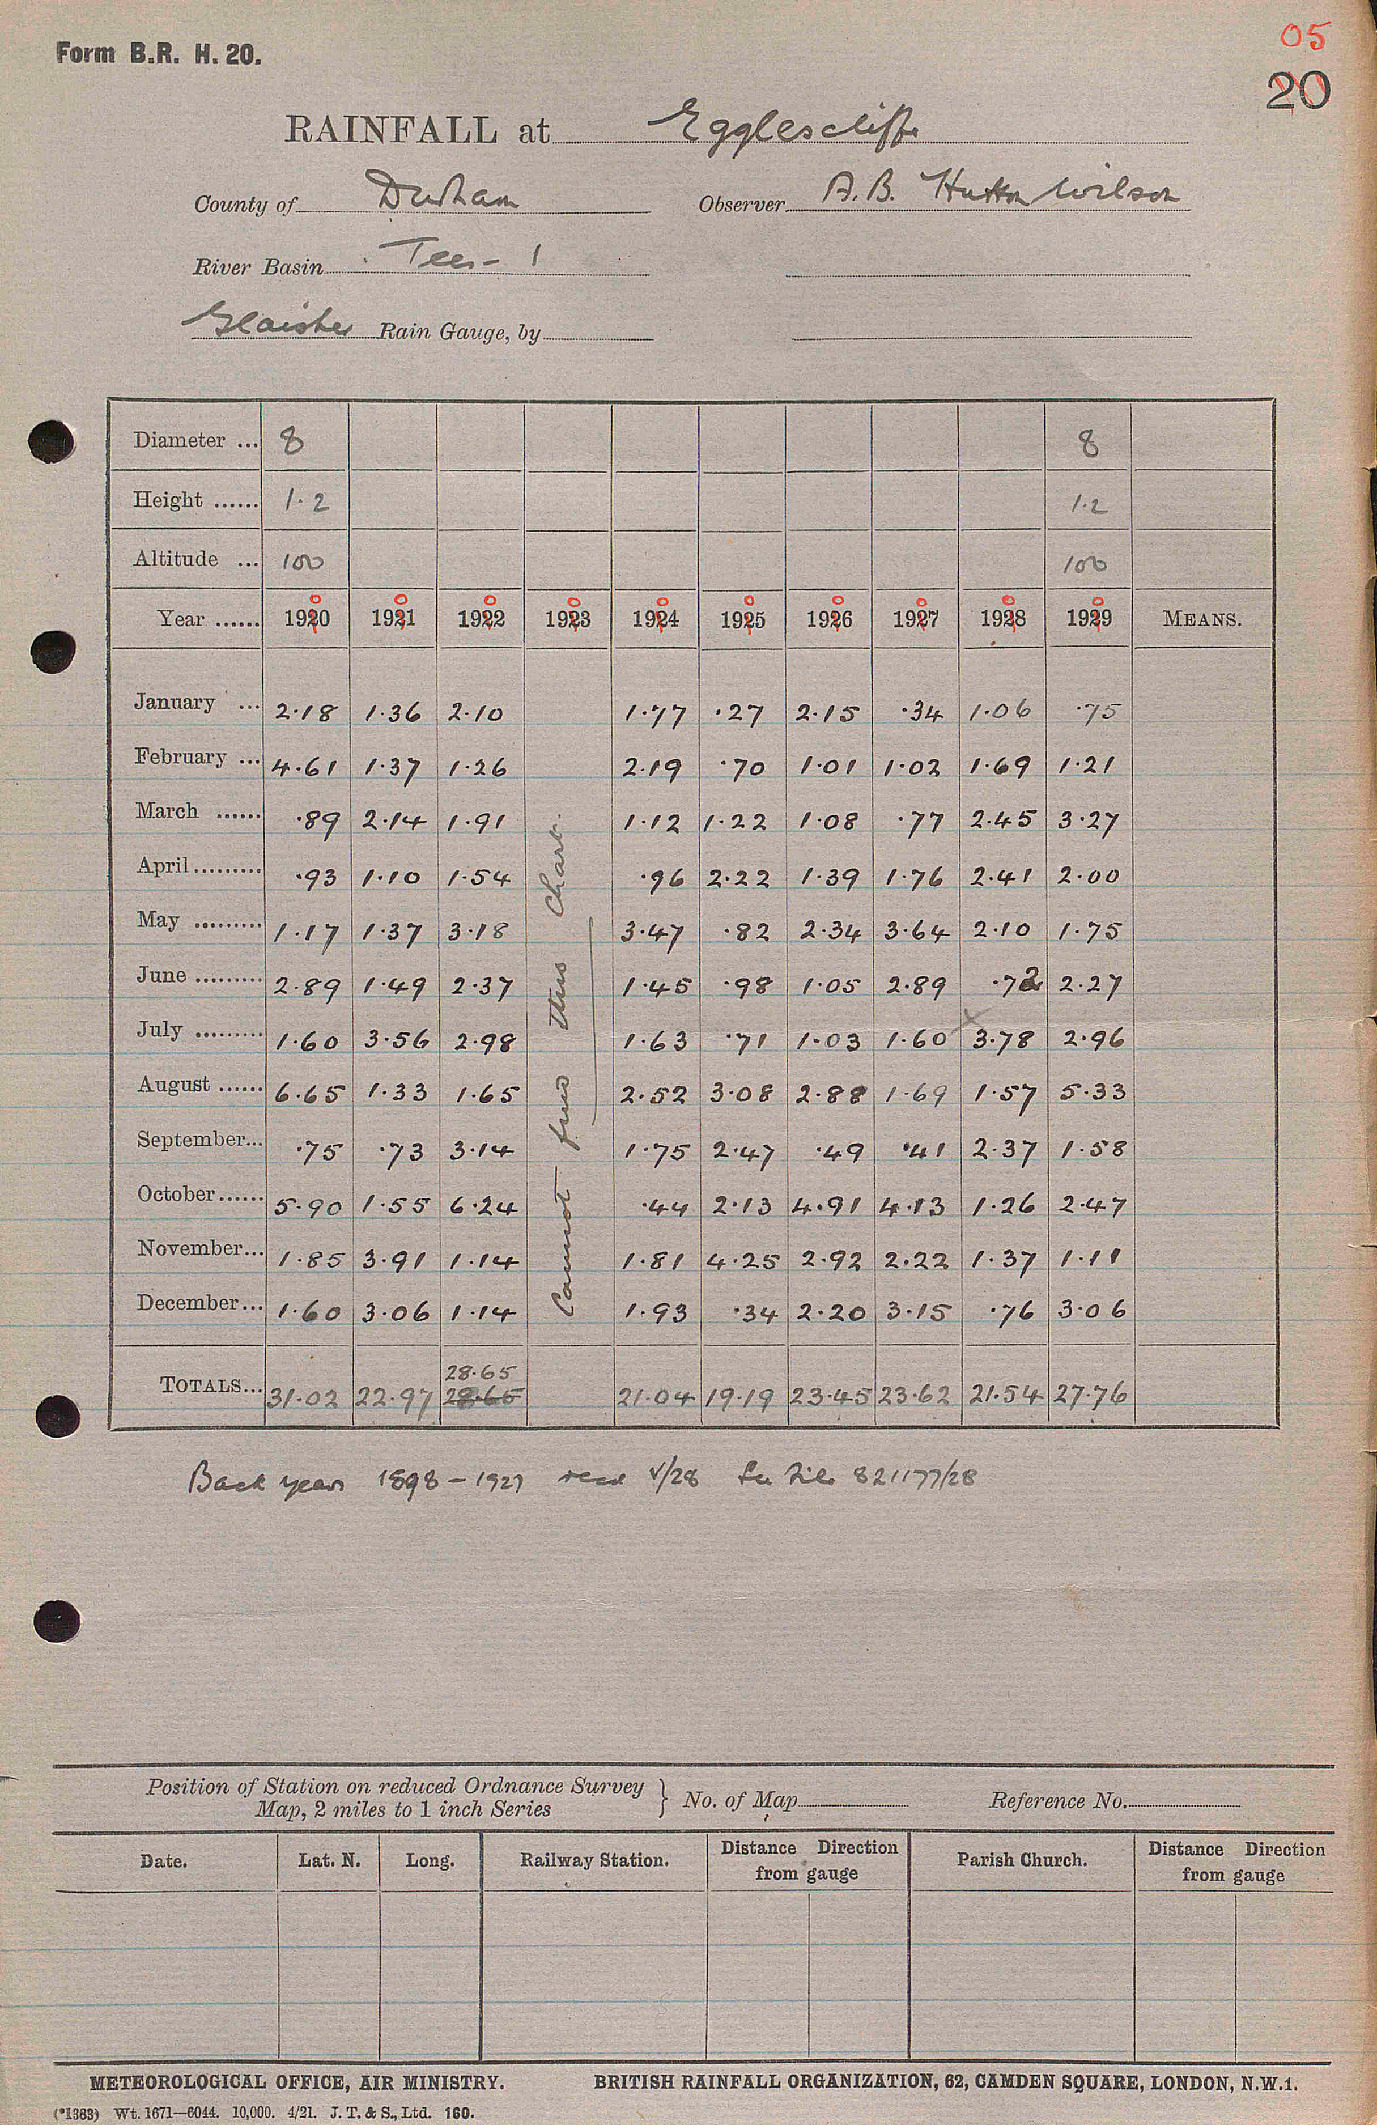 Form B.R. H. 20.
05
20
RAINFALL at Egglescliffe
County of Durham Observer A.B. Hutton Wilson
River Basin Tees - 1
Glaisher Rain Gauge, by
Diameter ... 8 8
Height ...... 1.2 1.2
Altitude ... 100 100
0 0 0 0 0 0 0 0 0 0
Year ...... 1920 1921 1922 1923 1924 1925 1926 1927 1928 1929 MEANS.
January ... 2.18 1.36 2.10 1.77 .27 2.15 .34 1.06 .75
February ... 4.61 1.37 1.26 2.19 .70 1.01 1.02 1.69 1.21
March ...... .89 2.14 1.91 1.12 1.22 1.08 .77 2.45 3.27
April ......... .93 1.10 1.54 .96 2.22 1.39 1.76 2.41 2.00
May ......... 1.17 1.37 3.18 3.47 .82 2.34 3.64 2.10 1.75
June ......... 2.89 1.49 2.37 1.45 .98 1.05 2.89 .72 2.27
July ......... 1.60 3.56 2.98 1.63 .71 1.03 1.60 x 3.78 2.96
August ...... 6.65 1.33 1.65 2.52 3.08 2.88 1.69 1.57 5.33
September... .75 .73 3.14 1.75 2.47 .49 .41 2.37 1.58
October...... 5.90 1.55 6.24 .44 2.13 4.91 4.13 1.26 2.47
November... 1.85 3.91 1.14 1.81 4.25 2.92 2.22 1.37 1.11
December... 1.60 3.06 1.14 1.93 .34 2.20 3.15 .76 3.06
Cannot find this Chart.
28.65
TOTALS... 31.02 22.97 28.65 21.04 19.19 23.45 23.62 21.54 27.76
Back years 1898 - 1927 recd V/28 See File 821177/28
Position of Station on reduced Ordnance Survey
Map, 2 miles to 1 inch Series } No. of Map Reference No.
Date. Lat. N. Long. Railway Station. Distance Direction from gauge Parish Church. Distance Direction from gauge
METEOROLOGICAL OFFICE, AIR MINISTRY. BRITISH RAINFALL ORGANIZATION, 62, CAMDEN SQUARE, LONDON, N.W.1.
(*1383) Wt. 1671—6044. 10,000. 4/21. J. T. & S., Ltd. 160.